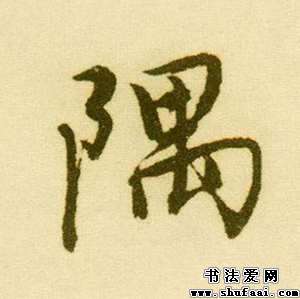 隅
书法爱网
www.shufaai.com